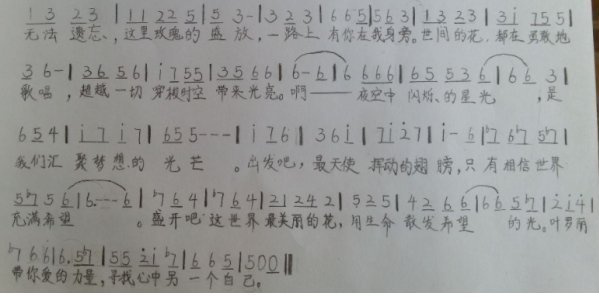 1 3 2 3 | 1 1 2 2 5 | 5 3 - | 3 2 3 | 6 6 5 | 5 6 3 | 1 3 2 3 | 3 i 7 5 5 |
无法 遗忘、,这里玫瑰的 盛 放,一路上 有你在我身旁。世间的花、都在勇敢地
3 6 - | 3 6 5 6 | i 7 5 5 | 3 5 6 6 | 6 - 6 | 6 6 6 6 | 6 5 5 3 6 | 6 6 3 |
歌唱 ,超越一切 穿梭时空 带来光亮。啊—— 夜空中 闪烁、的星光 ,是
6 5 4 | i 7 i 7 | 6 5 5 - - - | i 7 6 | 3 6 i | 7 i 2 7 | i - 6 | b7 6 b7 5 b7 |
我们汇 聚梦想、的 光 芒 。出发吧,最天使 挥动的翅 膀,只有相信世界
5 b7 5 6 | 6 - - - 6 | b7 6 4 | b7 6 4 | 2 1 2 4 2 | 5 2 5 | 4 2 6 6 | 6 6 5 b7 | 2 i 4 |
充满希望 。盛开吧 这世界 最美丽的花,用生命 散发希望 的光。叶罗丽
b7 6 6 | 6. 5 b7 | 5 5 2 i b7 | 6 6 5 | 5 0 0 ||
带你爱的力量,寻找心中另 一个自己。